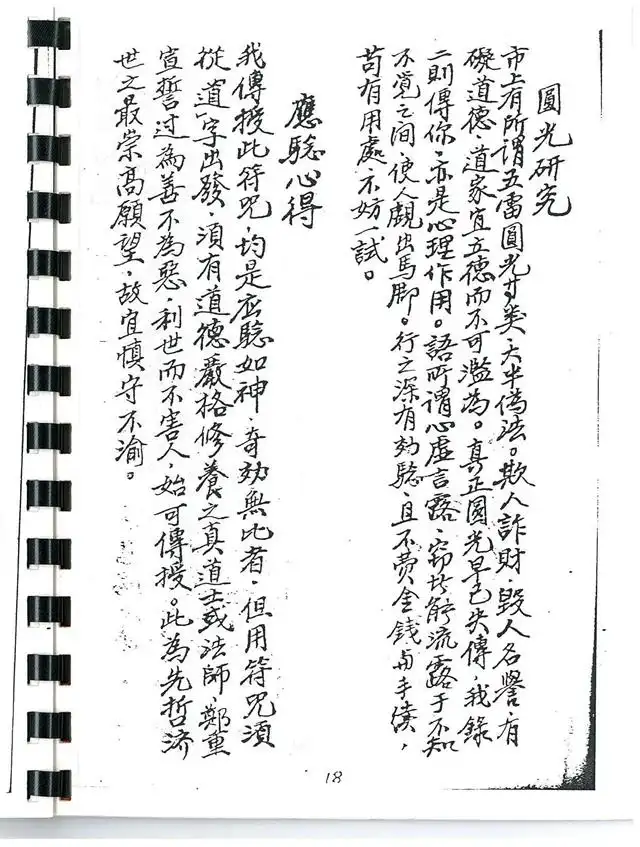 圓光研究
市上有所謂五雷圓光等类、大半偽法。欺人詐財、毀人名譽、有
礙道德、道家宜立德而不可濫為。真正圓光早已失傳、我錄
二則傳你、亦是心理作用。語所謂心虛言露、窃者能流露于不知
不覚之间、使人覷出馬脚。行之深有効驗、且不费金錢与手續、
苟有用處、不妨一試。
應驗心得
我傳授此符咒、均是应驗如神、奇効無比者、但用符咒須
從道字出發、須有道德嚴格修養之真道士或法師、鄭重
宣誓过為善不為惡、利世而不害人、始可傳授。此為先哲济
世之最崇高願望、故宜慎守不渝。
18